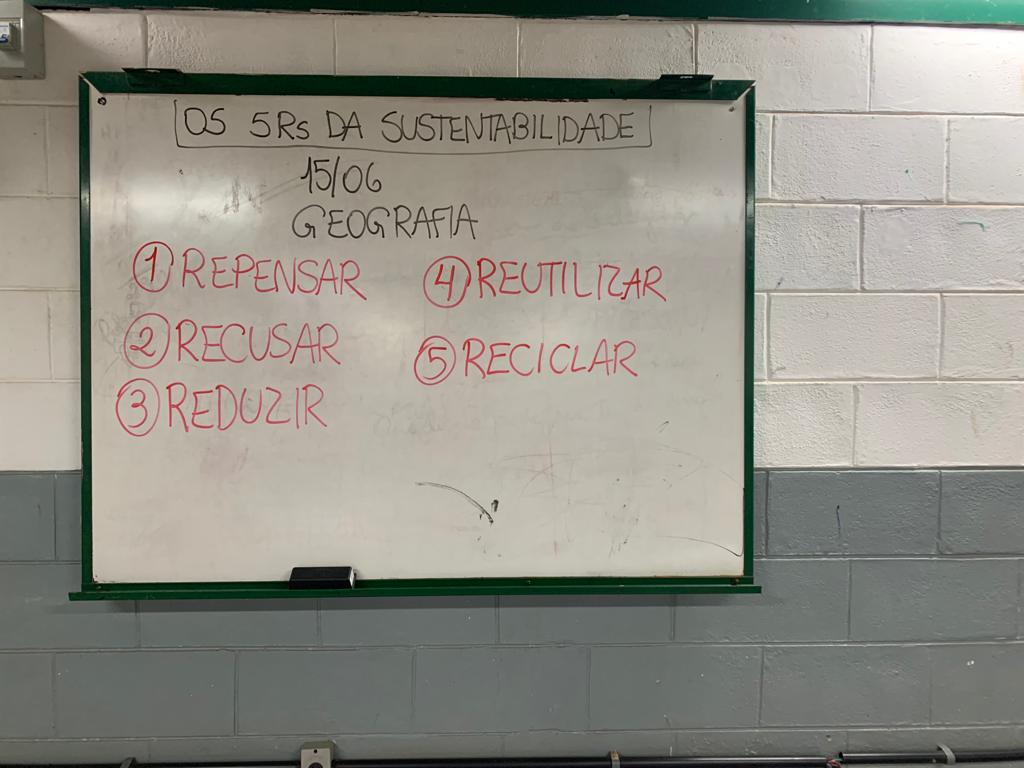 OS 5Rs DA SUSTENTABILIDADE
15/06
GEOGRAFIA
1 REPENSAR
2 RECUSAR
3 REDUZIR
4 REUTILIZAR
5 RECICLAR